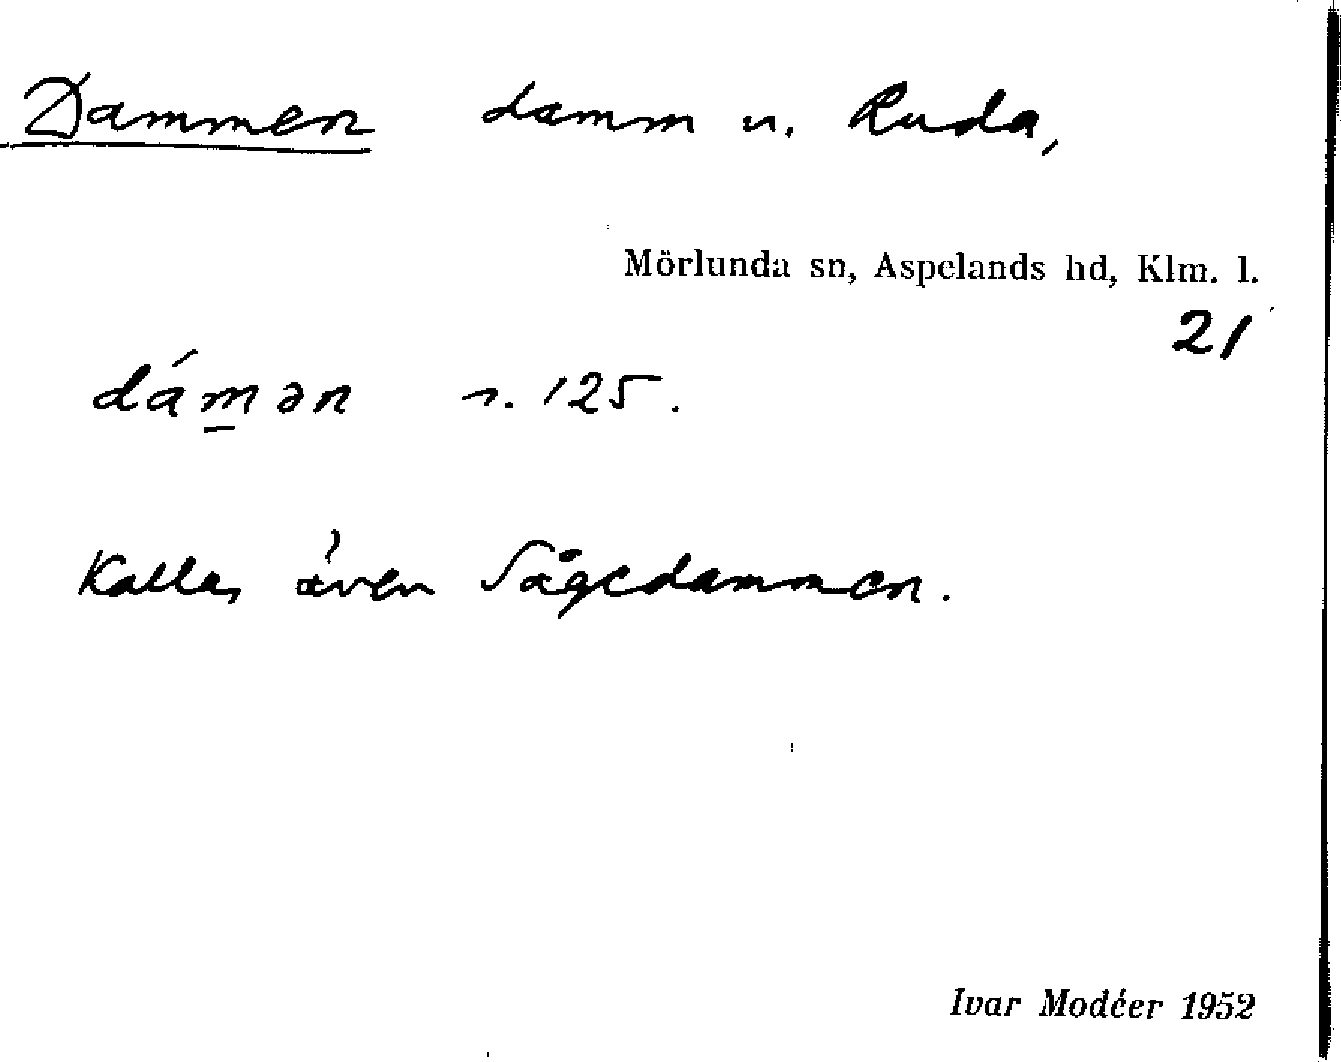 Dammen damm u. Ruda,
Mörlunda sn, Aspelands hd, Klm. l.
21
dám̲ən r. 125.
Kallas även Sågedammen.
Ivar Modéer 1952